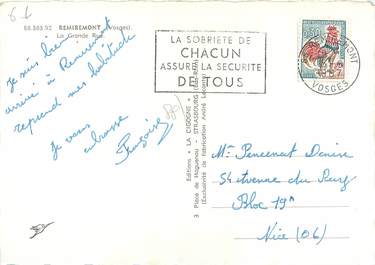 6.L
88.383.92 REMIREMONT (Vosges).
La Grande Rue
Je suis bien
arrivé à Remiremont
reprend mes habitude
Je vous
embrasse
Françoise
LA SOBRIETE DE
CHACUN
ASSURE LA SECURITE
DE TOUS
VOSGES
Editions « LA CIGOGNE »
3 Place de Haguenau - STRASBOURG (Bas-Rhin)
(Exclusivité de Fabrication André Leconte)
Me Pencenat Denise
St etienne du Ray
Bloc 19A
Nice (06)